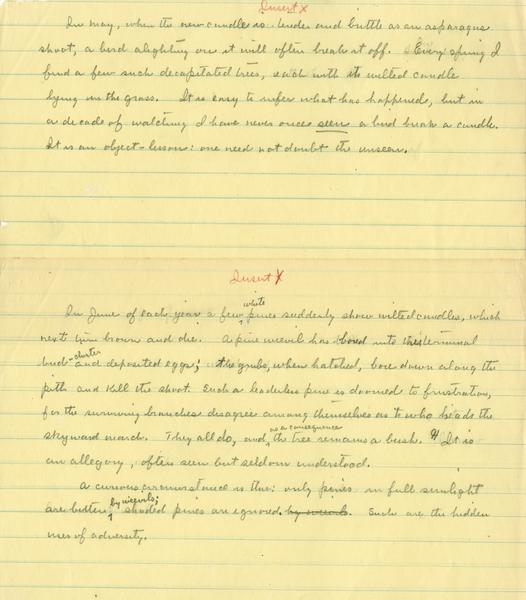 Insert X
In May, when the new candle is tender and brittle as an asparagus
shoot, a bird alighting on it will often break it off. Every spring I
find a few such decapitated trees, each with its wilted candle
lying in the grass. It is easy to infer what has happened, but in
a decade of watching I have never once seen a bird break a candle.
It is an object-lesson: one need not doubt the unseen.
Insert X
In June of each year a few white pines suddenly show wilted candles, which
next turn brown and die. A pine weevil has bored into the terminal
bud-cluster and deposited eggs; the grubs, when hatched, bore down along the
pith and kill the shoot. Such a leaderless pine is doomed to frustration,
for the surviving branches disagree among themselves as to who heads the
skyward march. They all do, and as a consequence the tree remains a bush. ¶ It is
an allegory, often seen but seldom understood.
A curious circumstance is this: only pines in full sunlight
are bitten by weevils; shaded pines are ignored by weevils. Such are the hidden
uses of adversity.